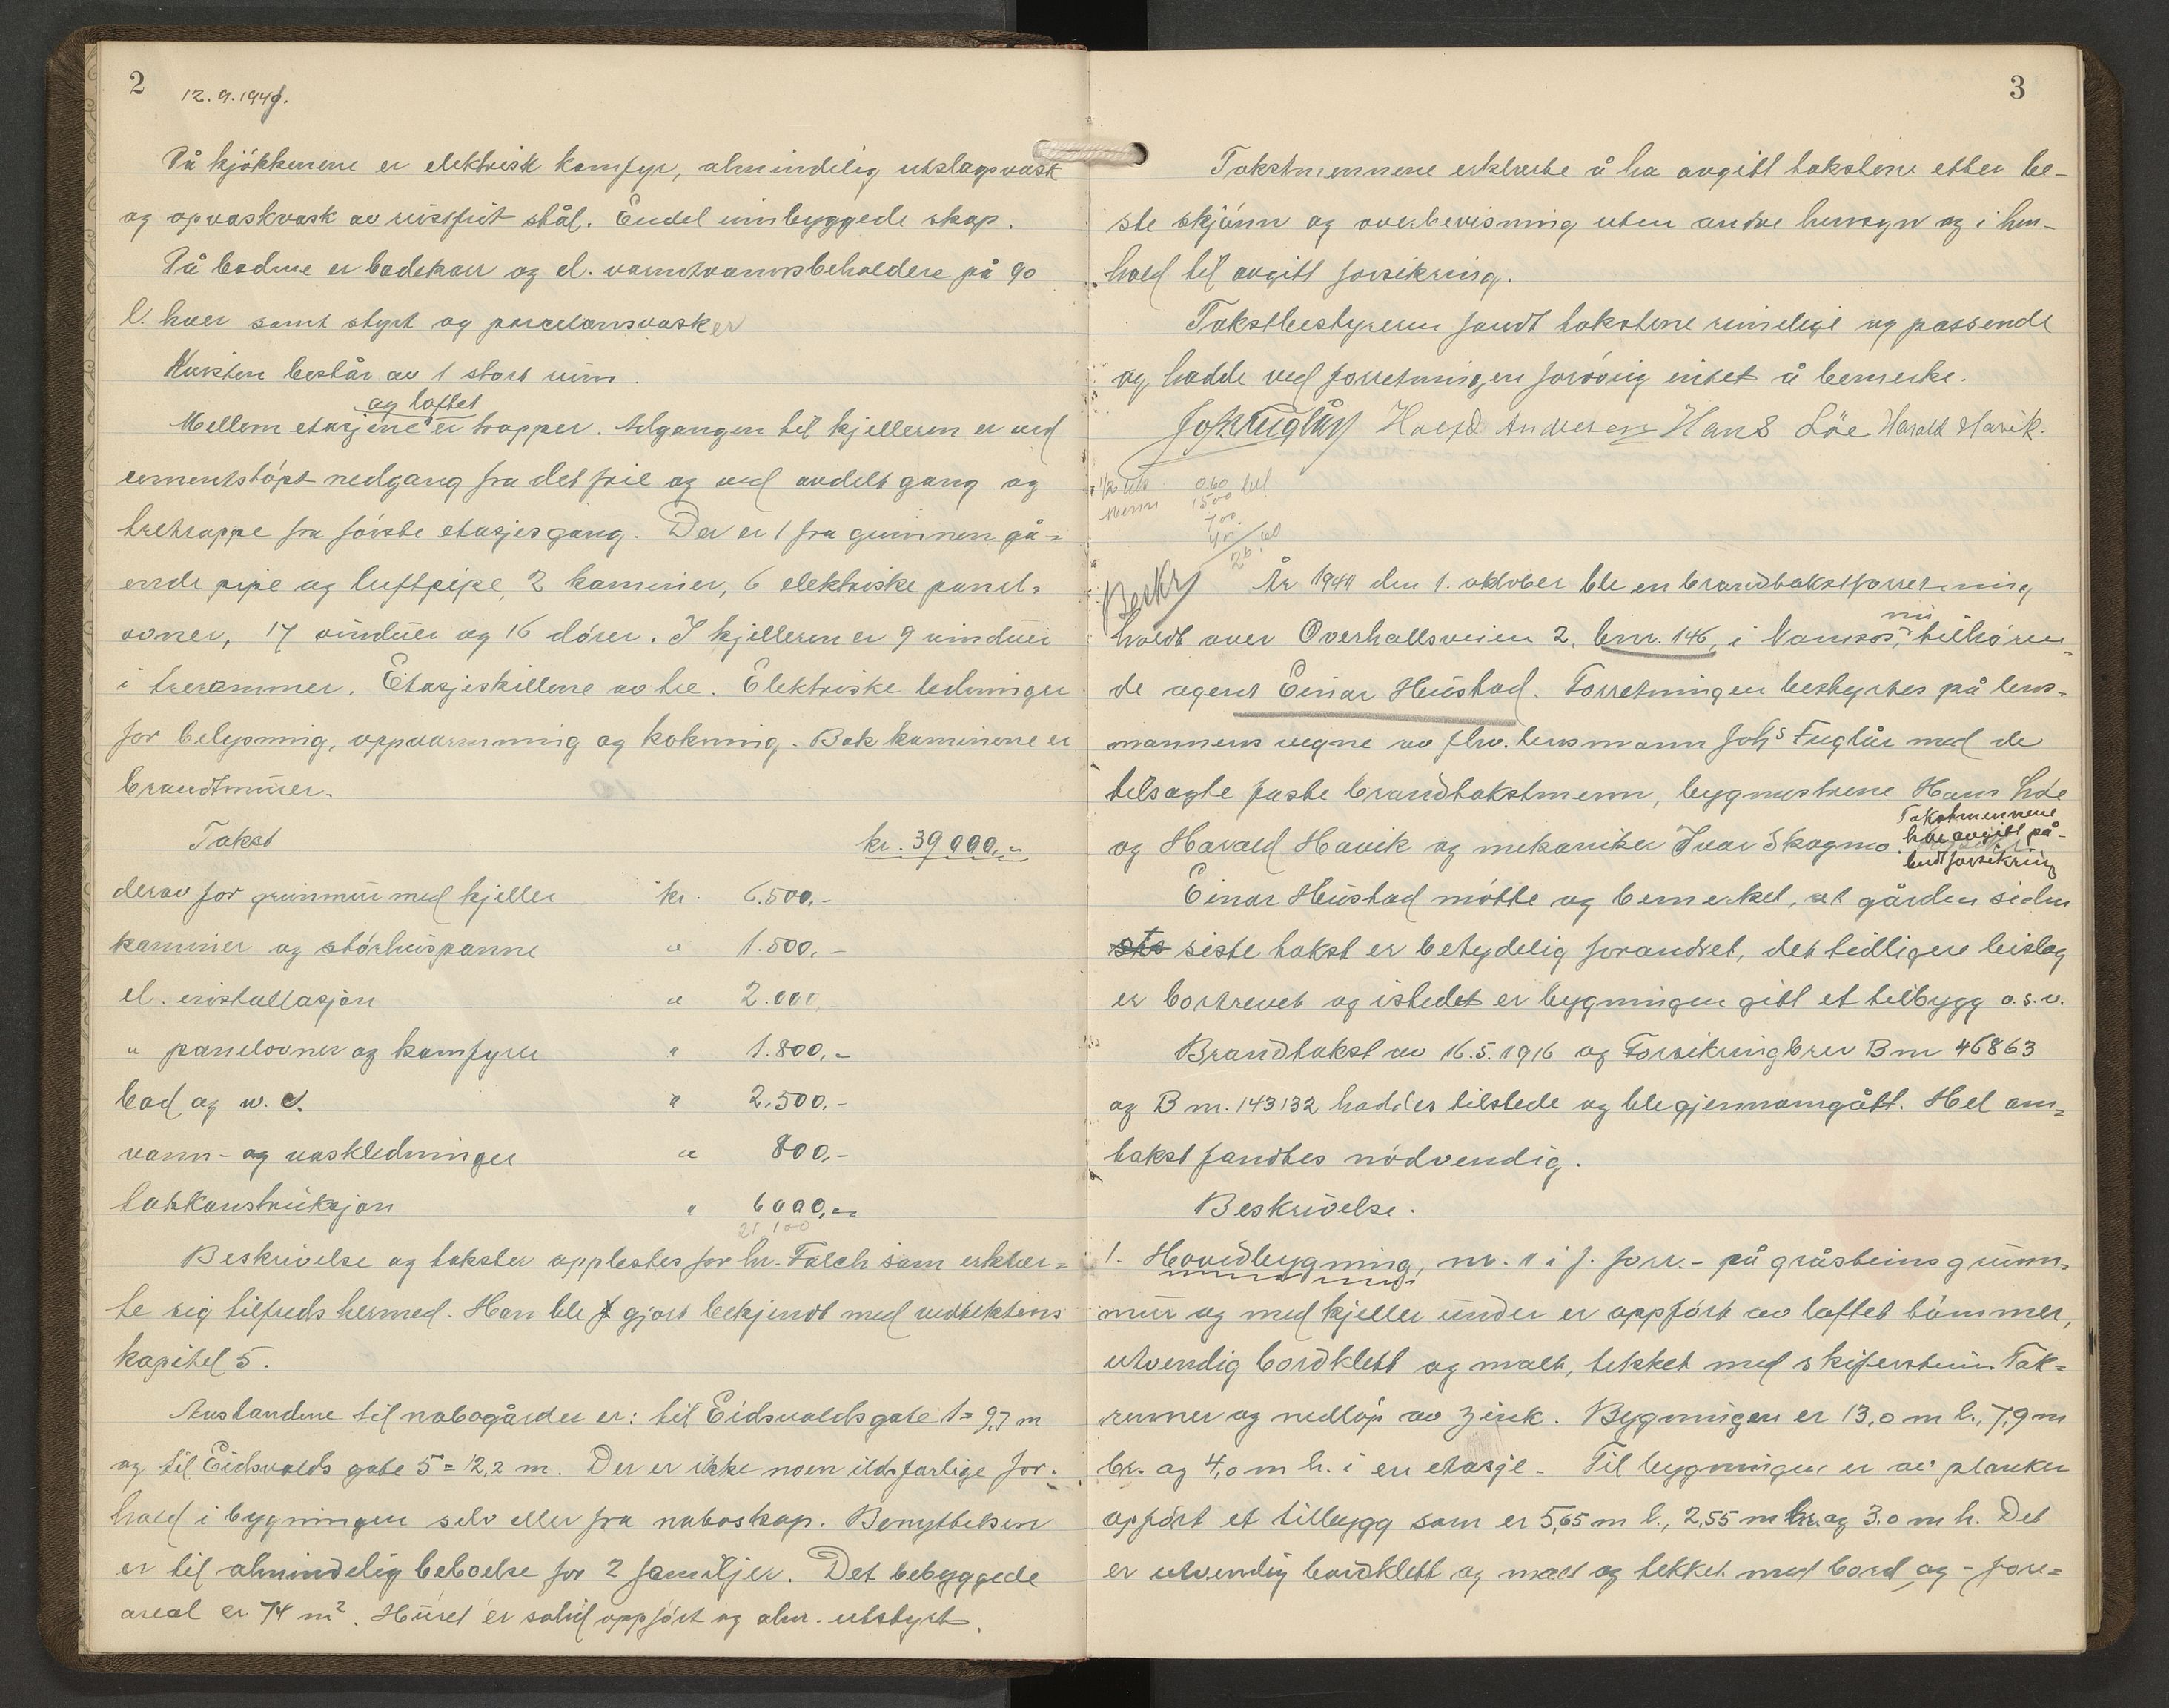 2
12.9.1941.
På kjøkkenene er elektrisk komfyr, almindelig utslagsvask
og opvaskvask av rustfrit stål. Endel innbyggede skap.
På badene er badekar og el. varmtvannsbeholdere på 90
l. hver samt styrt og porcelansvasker
Kvisten består av 1 stort rum.
og loftet
Mellem etasjene er trapper. Adgangen til kjelleren er ved
cementstøpt nedgang fra det frie og ved avdelt gang og
tretrappe fra første etasjesgang. Der er 1 fra grunnen gå-
ende pipe og luftpipe, 2 kaminer, 6 elektriske panel-
ovner, 17 vinduer og 16 dører. I kjelleren er 9 vinduer
i trerammer. Etasjeskillene av tre. Elektriske ledninger
for belysning, oppvarmning og kokning. Bak kaminene er
brandmurer.
Takst kr. 39000,-
derav for grunmur med kjeller kr. 6.500,-
kaminer og störhuspanne " 1.500,-
el. installasjon " 2.000,
" panelovner og komfyrer " 1.800,-
bad og w. c. " 2.500,-
vann- og vaskledninger " 800,-
takkonstruksjon " 6000,-
21,100
Beskrivelse og takster opplestes for hr. Falch som erklær-
te sig tilfreds hermed. Han ble gjort bekjendt med vedtektens
kapitel 5.
Avstandene til nabogårder er: til Eidsvoldsgate 1 = 9,7 m
og til Eidsvolds gate 5 = 12,2 m. Der er ikke noen ildsfarlige for-
hold i bygningen selv eller fra naboskap. Benyttelsen
er til almindelig beboelse for 2 familjer. Det bebyggede
areal er 74 m². Huset er solid oppført og alm. utstyrt.
3
Takstmennene erklærte å ha avgitt takstene etter be-
ste skjønn og overbevisning uten andre hensyn og i hen-
hold til avgitt forsikring.
Takstbestyreren fandt takstene rimelige og passende
og hadde ved forretningen forøvrig intet å bemerke.
Johs Fuglår Harald Andresen Hans Löe Harald Havik.
0.60
15.00
7.00
26.60
Beskr
År 1941 den 1. oktober ble en brandtakstforretning
nu
holdt over Overhallsveien 2, bnr. 146, i Namsos, tilhøren-
de agent Einar Hustad. Forretningen bestyrtes på lens-
mannens vegne av fhv. lensmann Johs Fuglår med de
tilsagte faste brandtakstmenn, bygmestrene Hans Löe
og Harald Havik og mekaniker Ivar Skagmo.
Takstmennene
har avgitt på-
budt forsikring
Einar Hustad møtte og bemerket, at gården siden
sts siste takst er betydelig forandret, det tidligere bislag
er bortrevet og istedet er bygningen gitt et tilbygg o.s.v.
Brandtakst av 16.5.1916 og Forsikringbrev B nr 46863
og B nr. 143132 haddes tilstede og ble gjennomgått. Hel om-
takst fandtes nödvendig.
Beskrivelse.
1. Hovedbygning, nr. 1 i f. forr. - på gråsteins grunn-
mur og med kjeller under er oppfört av laftet tömmer,
utvendig bordklett og malt, tekket med skiferstein. Tak-
renner og nedløp av zink. Bygningen er 13,0 m l., 7,9 m
br. og 4,0 m h. i en etasje. Til bygningen er av planker
oppført et tilbygg som er 5,65 m l., 2,55 m br. og 3.0 m h. Det
er utvendig bordklett og malt og tekket med bord og - fore-